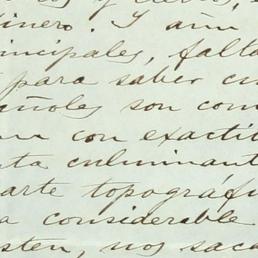 os y
inero. Y aún
incipales, falta
para saber cu
añoles son com
con exactit
ta culminant
arte topográfi
a considerable
sten, nos saca